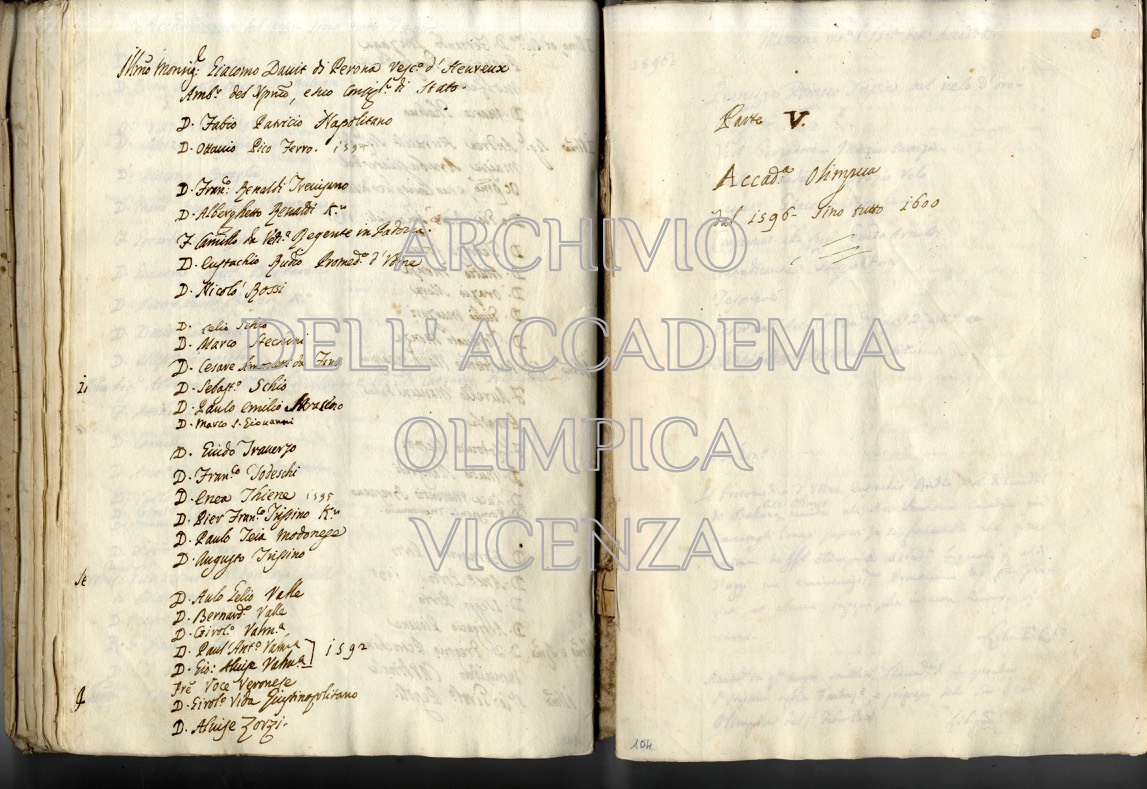 Illmo Monsig.r Giacomo Dauit di Perona Vesc.o d'Heureux
Amb.r del Xpmo, e suo Consigl.r di Stato
D. Fabio Patricio Napolitano
D. Ottauio Pico Ferro. 1595
D. Fran.co Renaldi Treuigiano
D. Alberghetto Renaldi K.r
F. Camillo da Vett.a Regente in Padoa.
D. Eustachio Promed.e d'Vdine
D. Nicolò Rossi
D. Celio Schio
D. Marco Stecchini
D. Cesare da Fano
D. Sebast.o Schio
D. Paulo Emilio
D. Marco S. Giouanni
D. Guido Trauerzo
D. Fran.co Todeschi
D. Enea Thiene 1595
D. Pier Fran.co Trissino K.r
D. Paulo Teia Modonese
D. Augusto Trissino
D. Aulo Gelio Valle
D. Bernard.o Valle
D. Girol.o Valm.a
D. Paul'Ant.o Valm.a
D. Gio: Aluise Valm.a ] 1592
Pré Voce Veronese
D. Girol.o Vida Giustinopolitano
D. Aluise Zorzi.
Parte V.
Accad.a Olimpica
Dal 1596 sino tutto 1600
104
ARCHIVIO
DELL'ACCADEMIA
OLIMPICA
VICENZA